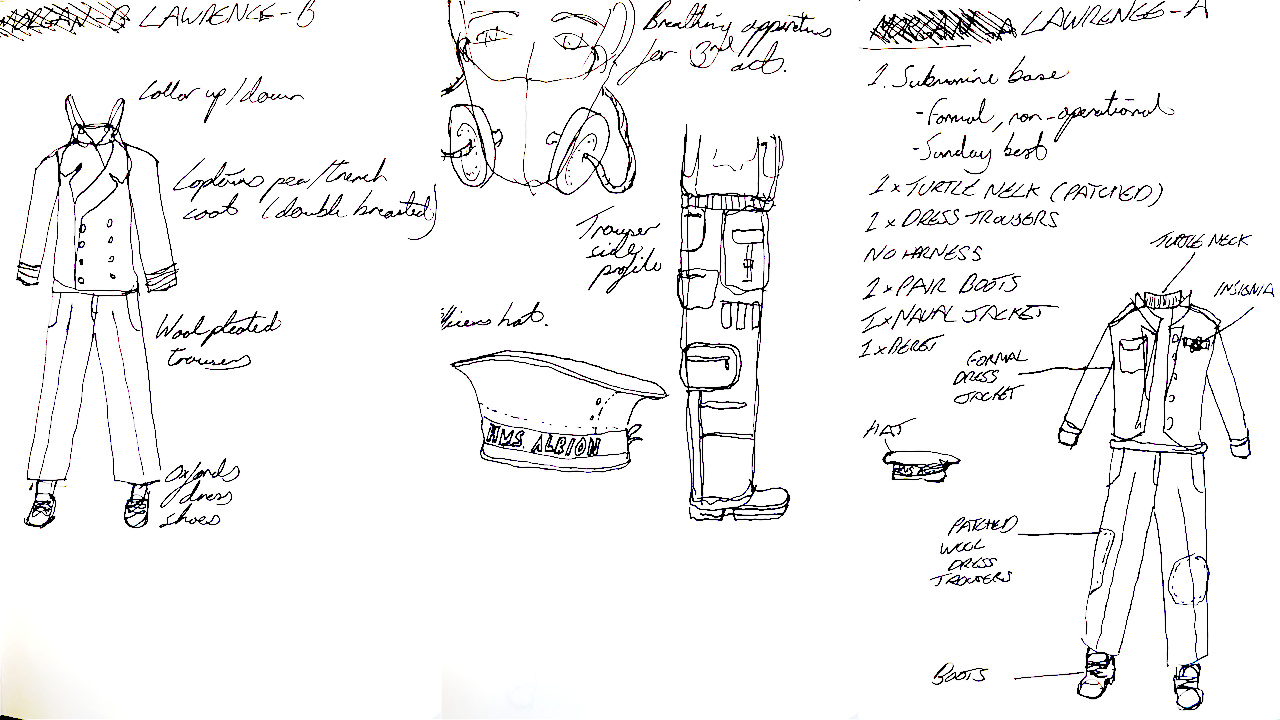 LAWRENCE-B
Collar up/down
Captains pea/trench
coat (double breasted)
Wool pleated
trousers
oxfords
dress
shoes
Breathing apparatus
for 3rd
act.
Trouser
side
profile
hat.
HMS ALBION
LAWRENCE-A
1. Submarine base
-Formal, non-operational
-Sunday best
1 x TURTLE NECK (PATCHED)
1 x DRESS TROUSERS
NO HARNESS
1 x PAIR BOOTS
1 x NAVAL JACKET
1 x BERET
TURTLE NECK
INSIGNIA
FORMAL
DRESS
JACKET
HAT
PATCHED
WOOL
DRESS
TROUSERS
BOOTS